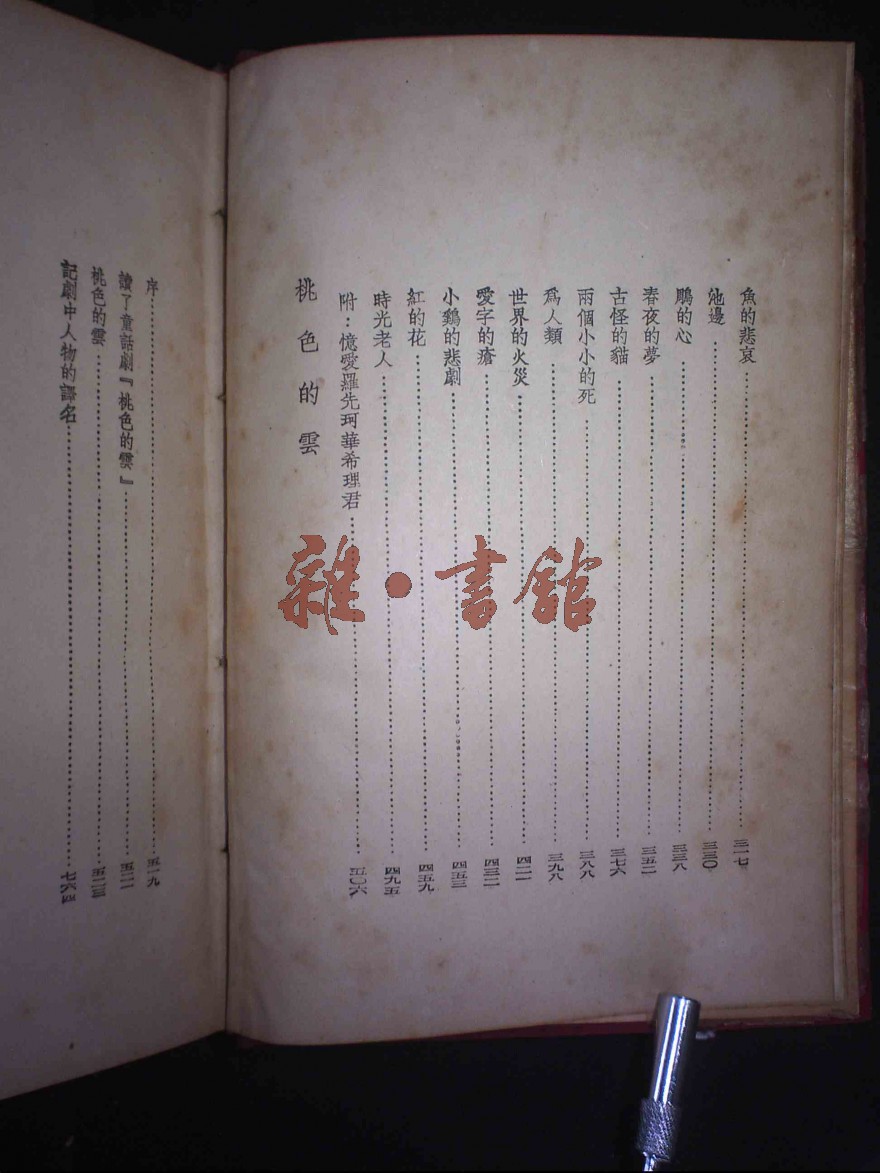 魚的悲哀……三一七
池邊……三三〇
鵰的心……三三八
春夜的夢……三五二
古怪的貓……三七六
兩個小小的死……三八八
爲人類……三九八
世界的火災……四二一
愛字的瘡……四三二
小鷄的悲劇……四五三
紅的花……四五九
時光老人……四九五
附：憶愛羅先珂華希理君……五〇六
桃色的雲
序……五一九
讀了童話劇『桃色的雲』……五二一
桃色的雲……五二三
記劇中人物的譯名……七六四
雜·書館